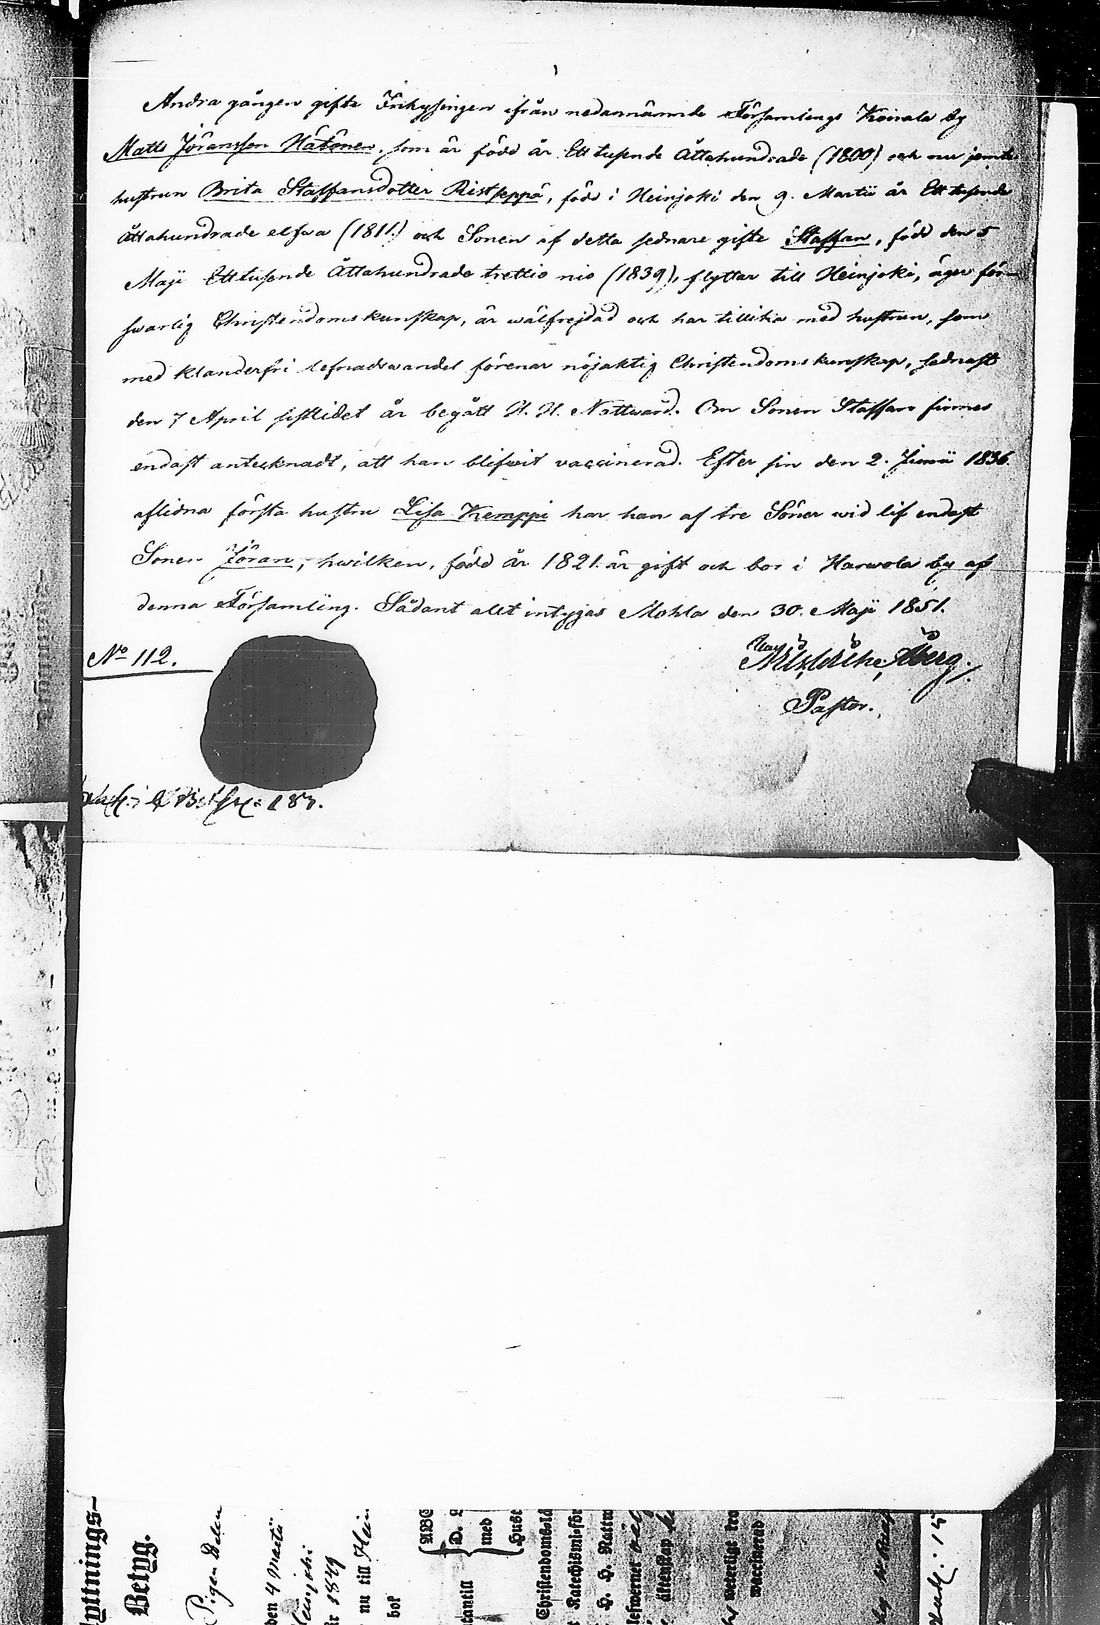 Andra gången gifte Inhysingen ifrån nedannämnde Församlings Koirala by
Matts Jöransson Hätönen, som är född år Ett tusende Åttahundrade (1800) och nu jemte
hustrun Brita Staffansdotter Ristseppä, född i Heinjoki den 9. Martii år Ett tusende
Åttahundrade elfva (1811.) och Sonen af detta sednare gifte Staffan, född den 5
Maji Ett tusende Åttahundrade trettio nio (1839), flyttar till Heinjoki, äger för-
svarlig Christendomskunskap, är wälfrejdad och har tillika med hustrun, som
med klanderfri lefnadswandel förenar nöjaktig Christendomskunskap, sednast
den 7 April sistlidet år begått H. H. Nattward. Om Sonen Staffan finnes
endast antecknadt, att han blifwit vaccinerad. Efter sin den 2. Junii 1836
aflidna första hustru Lisa Kemppi har han af tre Söner wid lif endast
Sonen Jöran, hwilken, född år 1821. är gift och bor i Harwola by af
denna Församling. Sådant allt intygas Mohla den 30. Maji 1851.
No 112.
Åberg.
Pastor.
185.
yttnings-
Betyg.
Pigan Helen
den 4 Martii
Heinjoki
år 1849
nu till Hein
bok
cantill
ABC
D. L
med
Hust
Christendomskä
Katechismi-för
H. H. Nattw
lefwernet
äktenskap
weterligt fre
vaccinerad